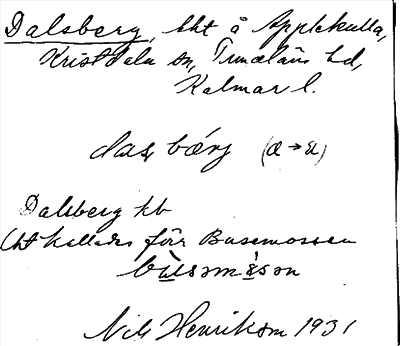 Dalsberg, lht å Applekulla,
Kristdala sn, Tunaläns hd,
Kalmar l.
dalsbærj (æ→ä)
Dalsberg hb
lht kallades förr Busemossen
bùsəmɔ̀sən
Nils Henriksson 1931